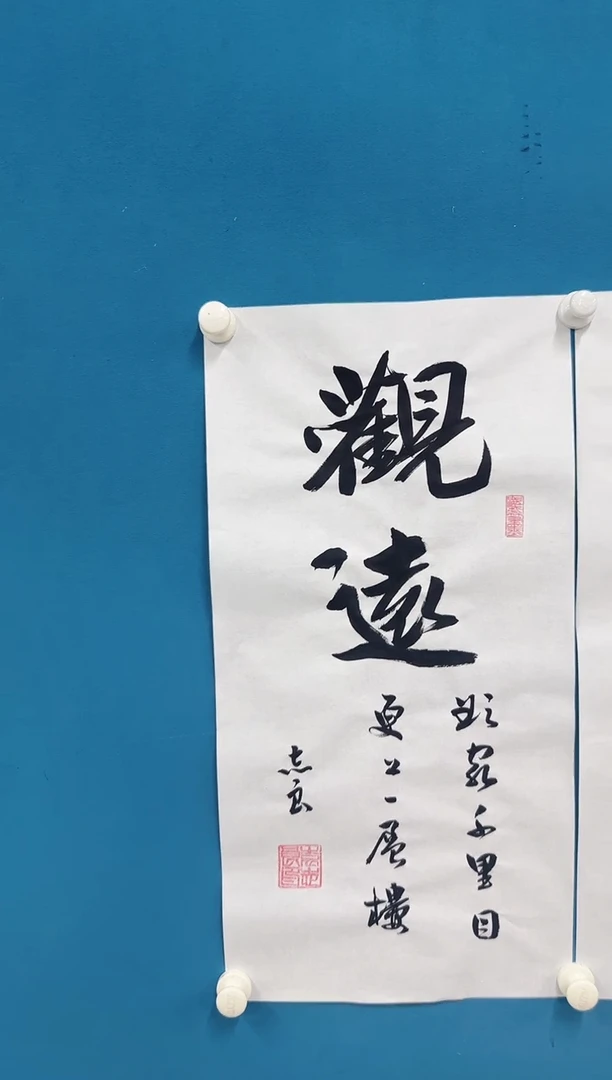 觀遠
欲窮千里目
更上一層樓